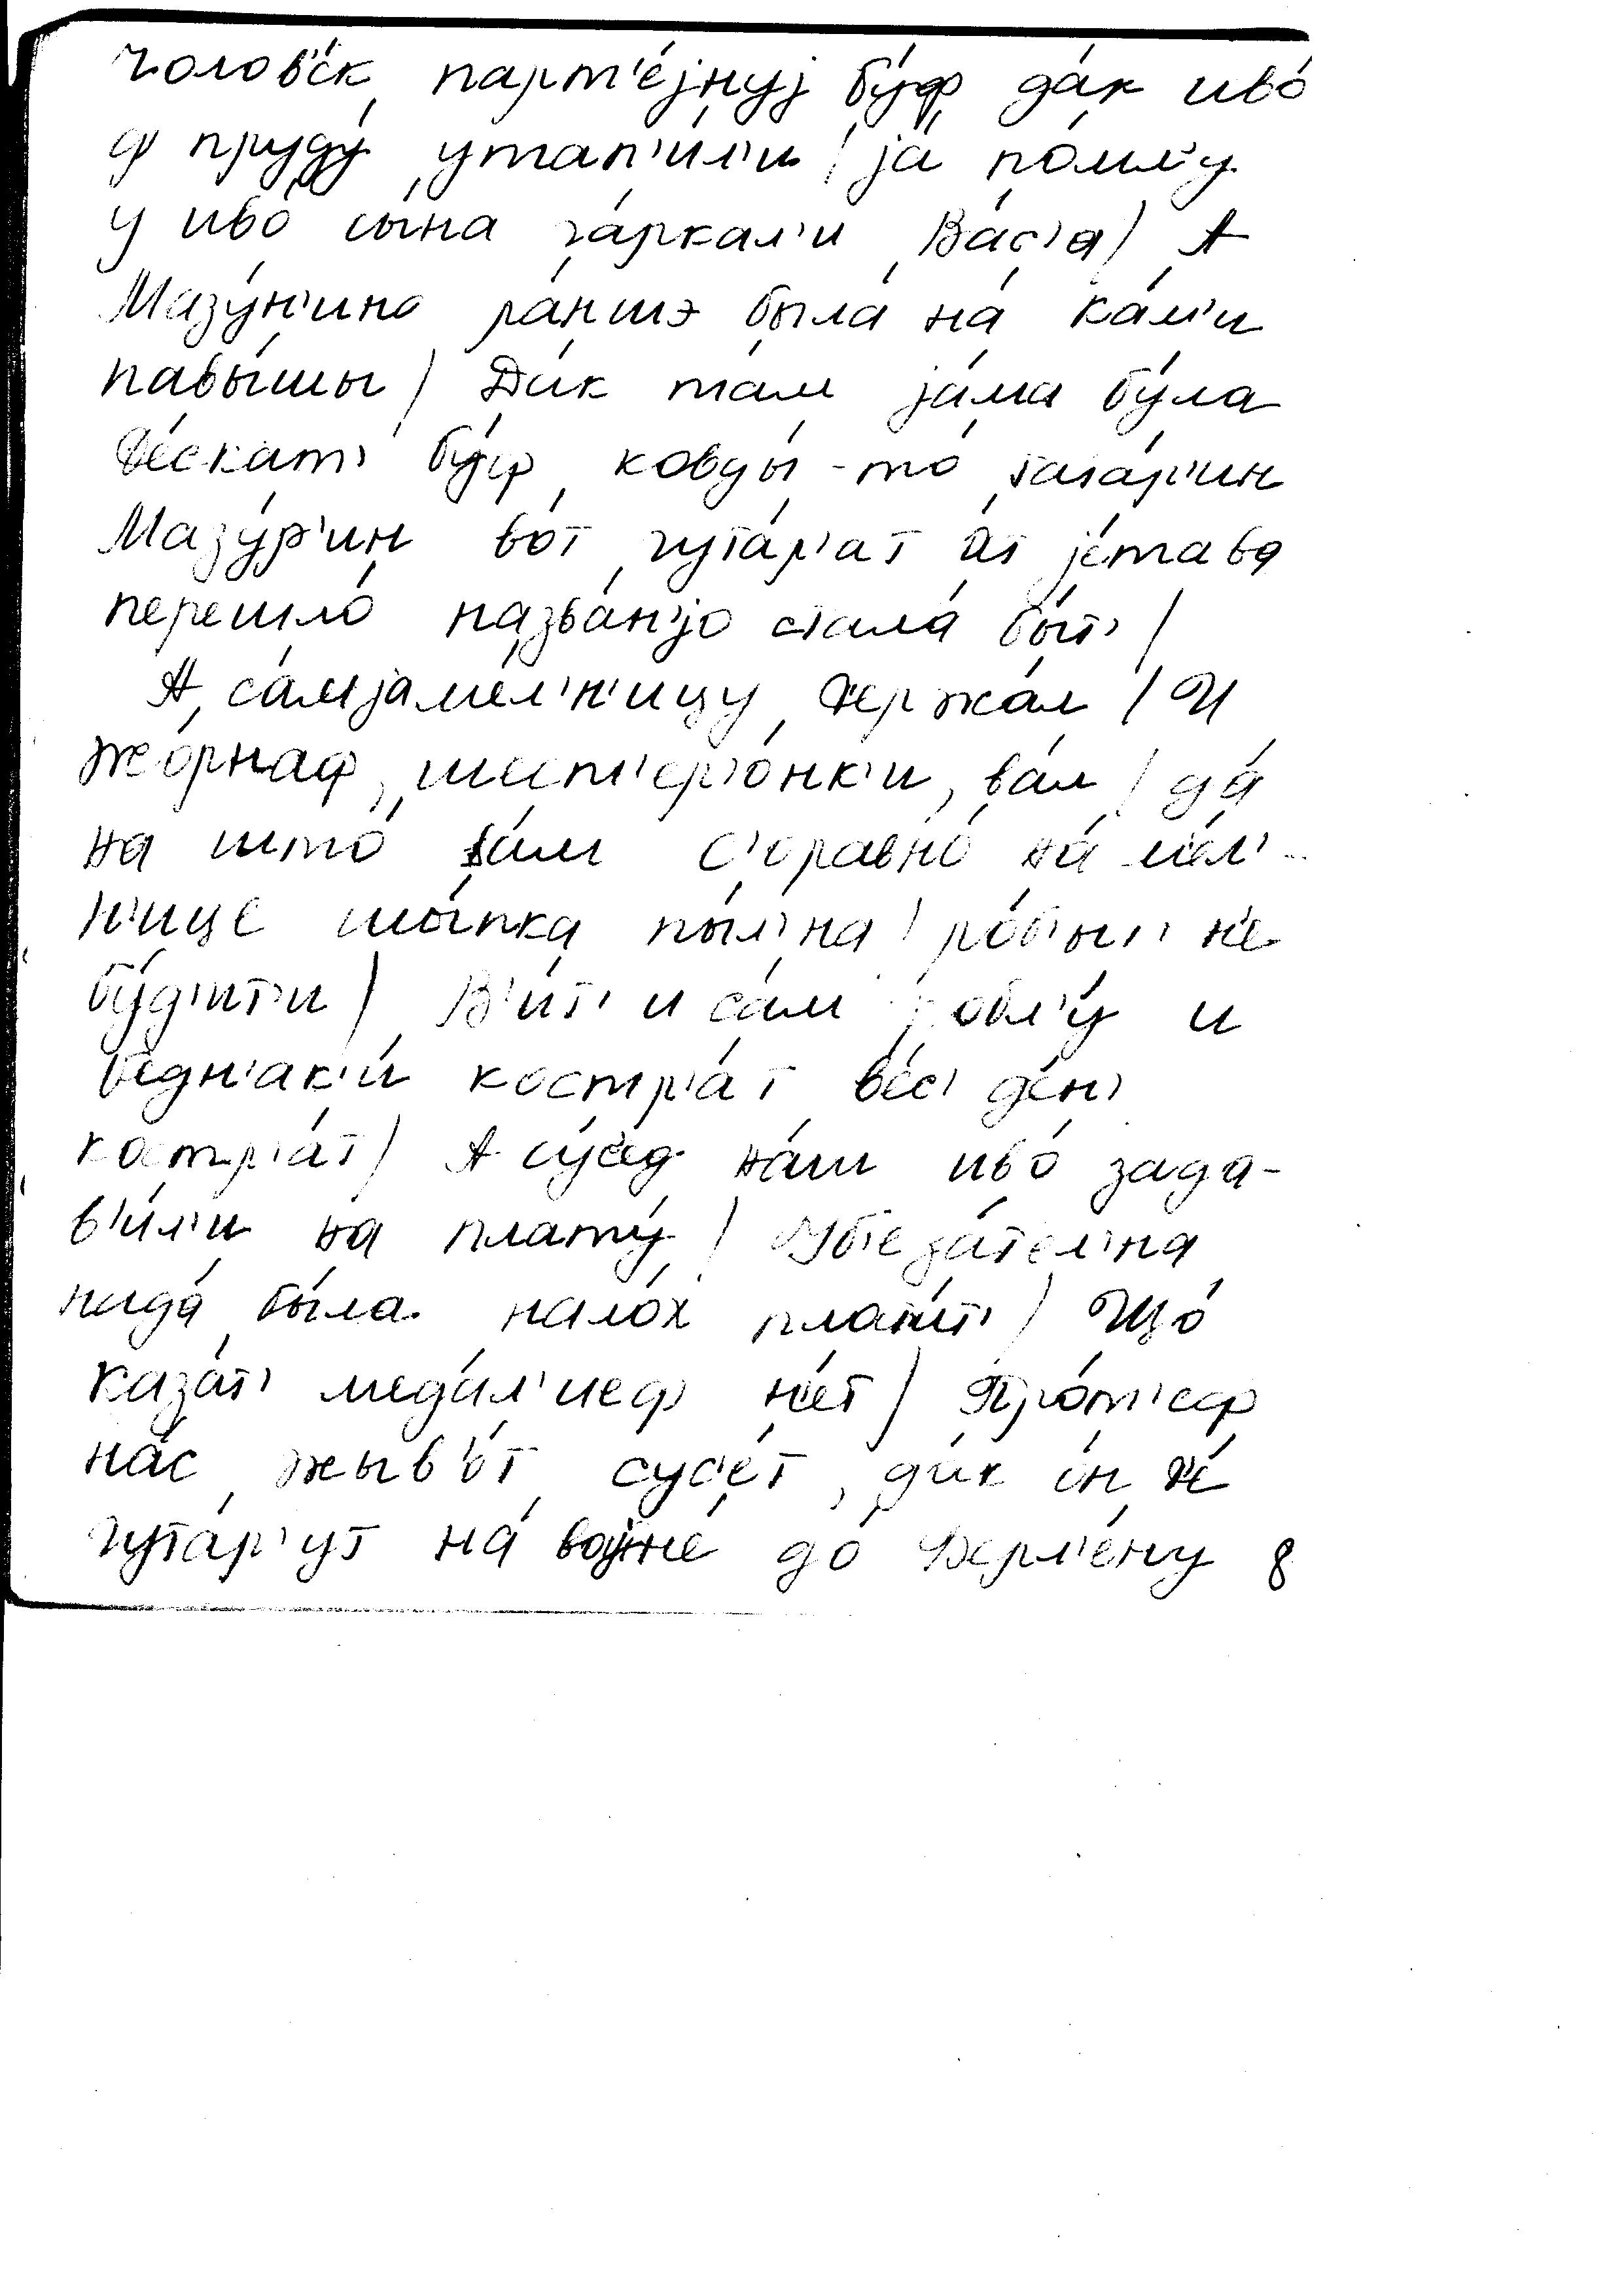 чолов'е́к парт'е́јнуј бу́ф да́к иво́
ф пруду́ утап'и́л'и / ја́ по́мл'у
у иво́ сы́на га́ркал'и Ва́с'а / А
Мазу́н'ино ра́ншэ была́ на́ Ка́м'и
павы́шы / Ди́к там ја́ма бу́ла
де́скат' бу́ф ковды́-то
Мазу́р'ин во́т гута́р'ат а́т је́тава
перешло́ назва́н'јо стала́ бы́т' /
А са́м ја мел'н'ицу держа́л / И
жо́рнаф, шест'ер'о́нк'и, ва́л / да́
на што́ ва́м с'оравно́ на́ ме́л'-
н'ице шы́пка пы́л'на / ро́б'ыт' н'е
бу́д'ит'и / В'ит' и са́м робл'у́ и
бедн'ак'и́ костр'а́т ве́с' де́н'
костр'а́т / А су́сед на́ш иво́ зада-
в'и́л'и на́ плату́ / Убеза́тел'на
нада́ бы́ла нало́х плати́т' / Що́
каза́т' меда́л'иеф н'е́т / Про́т'еф
на́с жыв'о́т сус'е́т, ди́к о́н н'е́
гута́р'ут на́ војне́ до́ 8